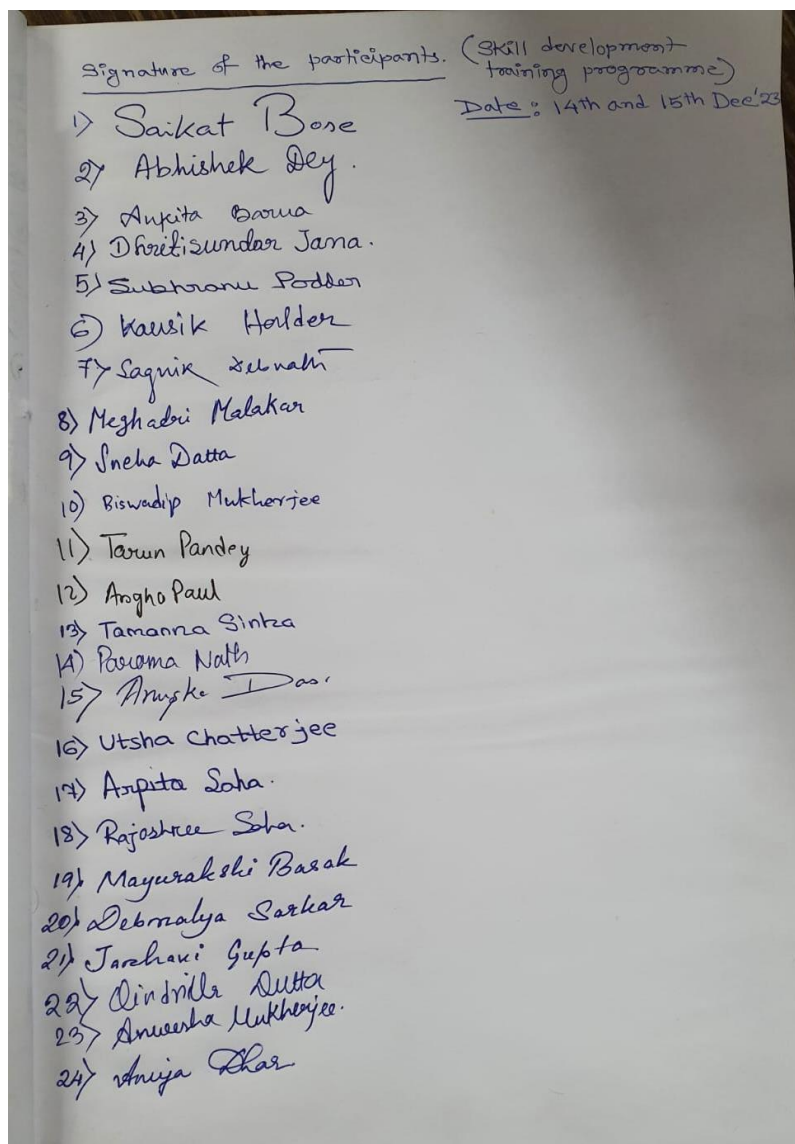 Signature of the participants. (Skill development
training programme)
Date: 14th and 15th Dec'23
1) Saikat Bose
2) Abhishek Dey.
3) Ankita Barua
4) Dhritisundar Jana.
5) Subhranu Podder
6) Kausik Halder
7) Sagnik Debnath
8) Meghadri Malakar
9) Sneha Datta
10) Biswadip Mukherjee
11) Tarun Pandey
12) Argho Paul
13) Tamanna Sinha
14) Paroma Nath
15) Das.
16) Utsha Chatterjee
17) Arpita Saha.
18) Rajoshree Saha.
19) Mayurakshi Basak
20) Debmalya Sarkar
21) Gupta
22) Dutta
23) Anwesha Mukherjee.
24) Dhar